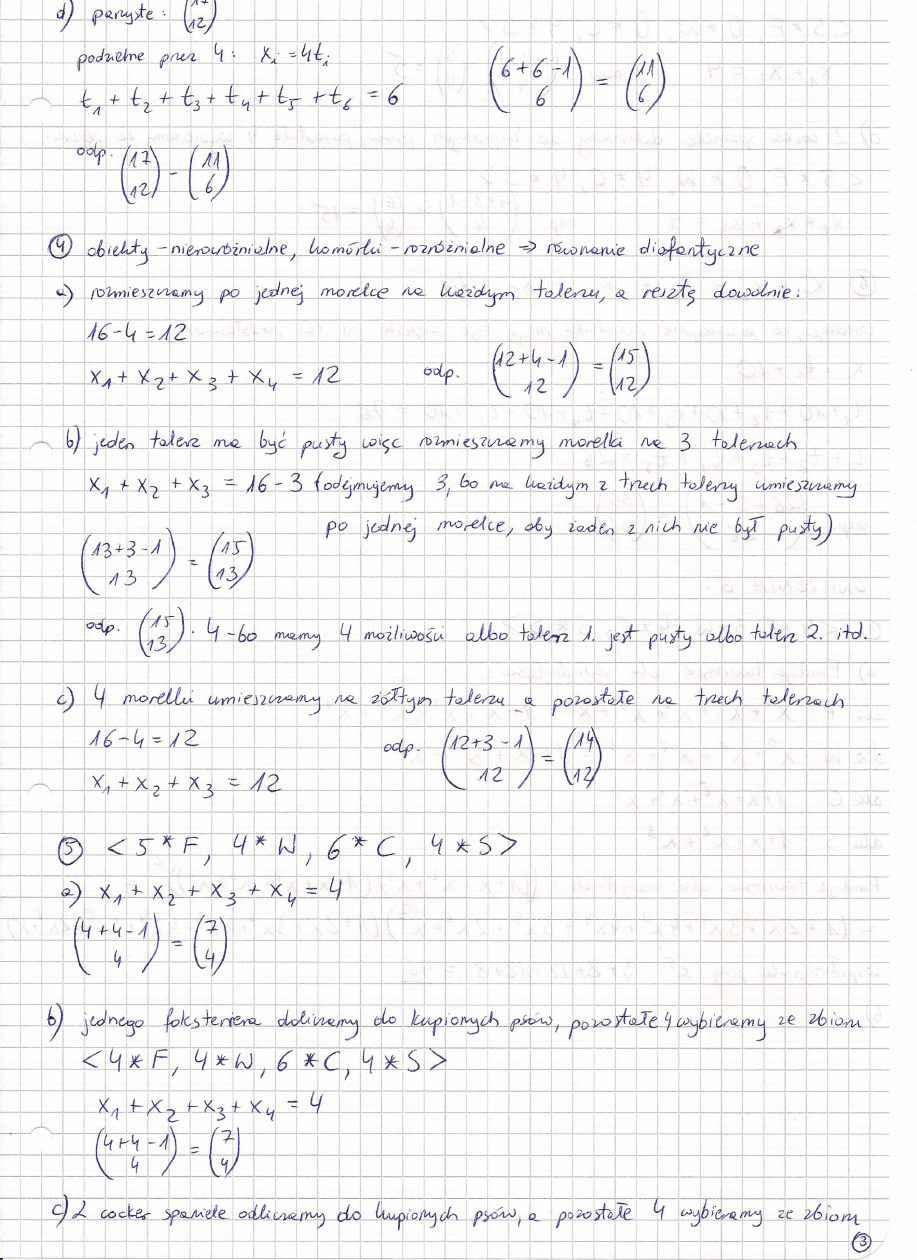 d) parzyste: (17 12)
podzielne przez 4: xᵢ = 4tᵢ
t₁ + t₂ + t₃ + t₄ + t₅ + t₆ = 6 (6+6-1 6) = (11 6)
odp. (17 12) - (11 6)
④ obiekty - nierozróżnialne, komórki - rozróżnialne ⇒ równanie diofantyczne
a) rozmieszczamy po jednej morelce na każdym talerzu, a resztę dowolnie:
16-4 = 12
x₁ + x₂ + x₃ + x₄ = 12 odp. (12+4-1 12) = (15 12)
b) jeden talerz ma być pusty więc rozmieszczamy morelki na 3 talerzach
x₁ + x₂ + x₃ = 16-3 (odejmujemy 3, bo na każdym z trzech talerzy umieszczamy
po jednej morelce, aby żaden z nich nie był pusty)
(13+3-1 13) = (15 13)
odp. (15 13) · 4 - bo mamy 4 możliwości albo talerz 1. jest pusty albo talerz 2. itd.
c) 4 morelki umieszczamy na żółtym talerzu a pozostałe na trzech talerzach
16-4 = 12 odp. (12+3-1 12) = (14 12)
x₁ + x₂ + x₃ = 12
⑤ <5*F, 4*W, 6*C, 4*S>
a) x₁ + x₂ + x₃ + x₄ = 4
(4+4-1 4) = (7 4)
b) jednego foksteriera doliczamy do kupionych psów, pozostałe 4 wybieramy ze zbioru
<4*F, 4*W, 6*C, 4*S>
x₁ + x₂ + x₃ + x₄ = 4
(4+4-1 4) = (7 4)
c) 2 cocker spaniele odliczamy do kupionych psów, a pozostałe 4 wybieramy ze zbioru
③